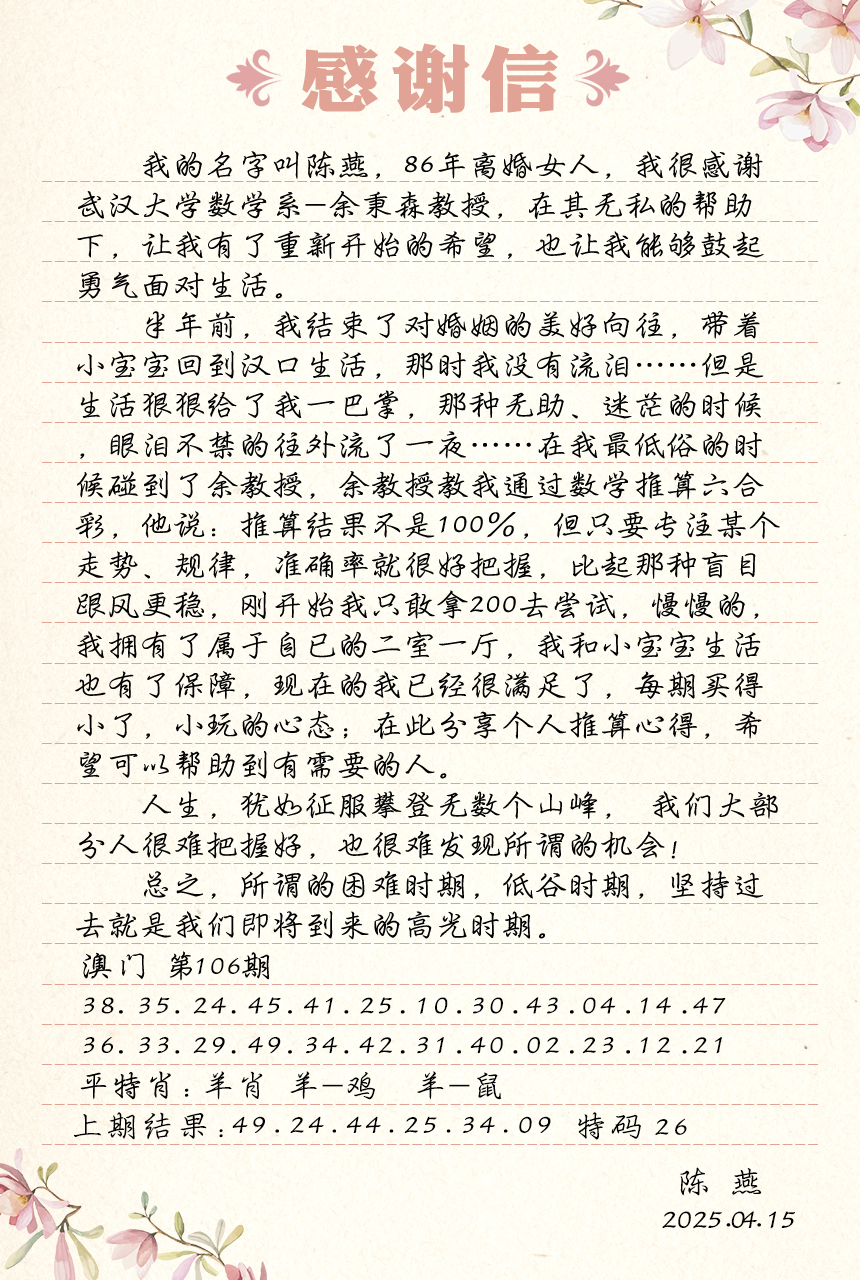 感谢信
我的名字叫陈燕，86年离婚女人，我很感谢
武汉大学数学系—余秉森教授，在其无私的帮助
下，让我有了重新开始的希望，也让我能够鼓起
勇气面对生活。
半年前，我结束了对婚姻的美好向往，带着
小宝宝回到汉口生活，那时我没有流泪……但是
生活狠狠给了我一巴掌，那种无助、迷茫的时候
，眼泪不禁的往外流了一夜……在我最低俗的时
候碰到了余教授，余教授教我通过数学推算六合
彩，他说：推算结果不是100%，但只要专注某个
走势、规律，准确率就很好把握，比起那种盲目
跟风更稳，刚开始我只敢拿200去尝试，慢慢的，
我拥有了属于自已的二室一厅，我和小宝宝生活
也有了保障，现在的我已经很满足了，每期买得
小了，小玩的心态；在此分享个人推算心得，希
望可以帮助到有需要的人。
人生，犹如征服攀登无数个山峰， 我们大部
分人很难把握好，也很难发现所谓的机会！
总之，所谓的困难时期，低谷时期，坚持过
去就是我们即将到来的高光时期。
澳门 第106期
38.35.24.45.41.25.10.30.43.04.14.47
36.33.29.49.34.42.31.40.02.23.12.21
平特肖：羊肖 羊—鸡 羊—鼠
上期结果：49.24.44.25.34.09 特码 26
陈 燕
2025.04.15